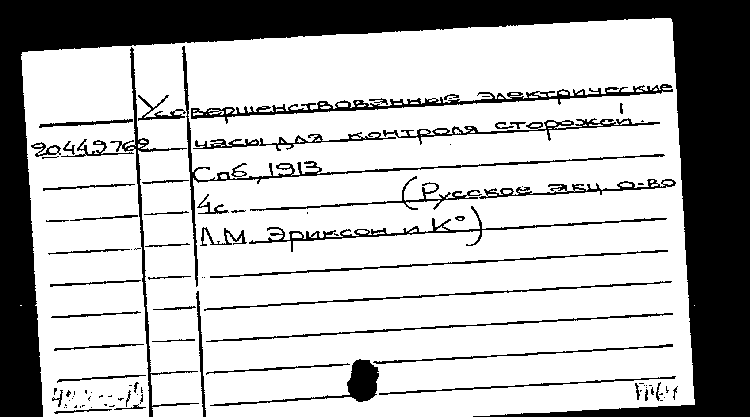 Усовершенствованные электрические
20449762 часы для контроля сторожей.
Спб, 1913
4с. (Русское акц. о-во
Л.М. Эриксон и К°)